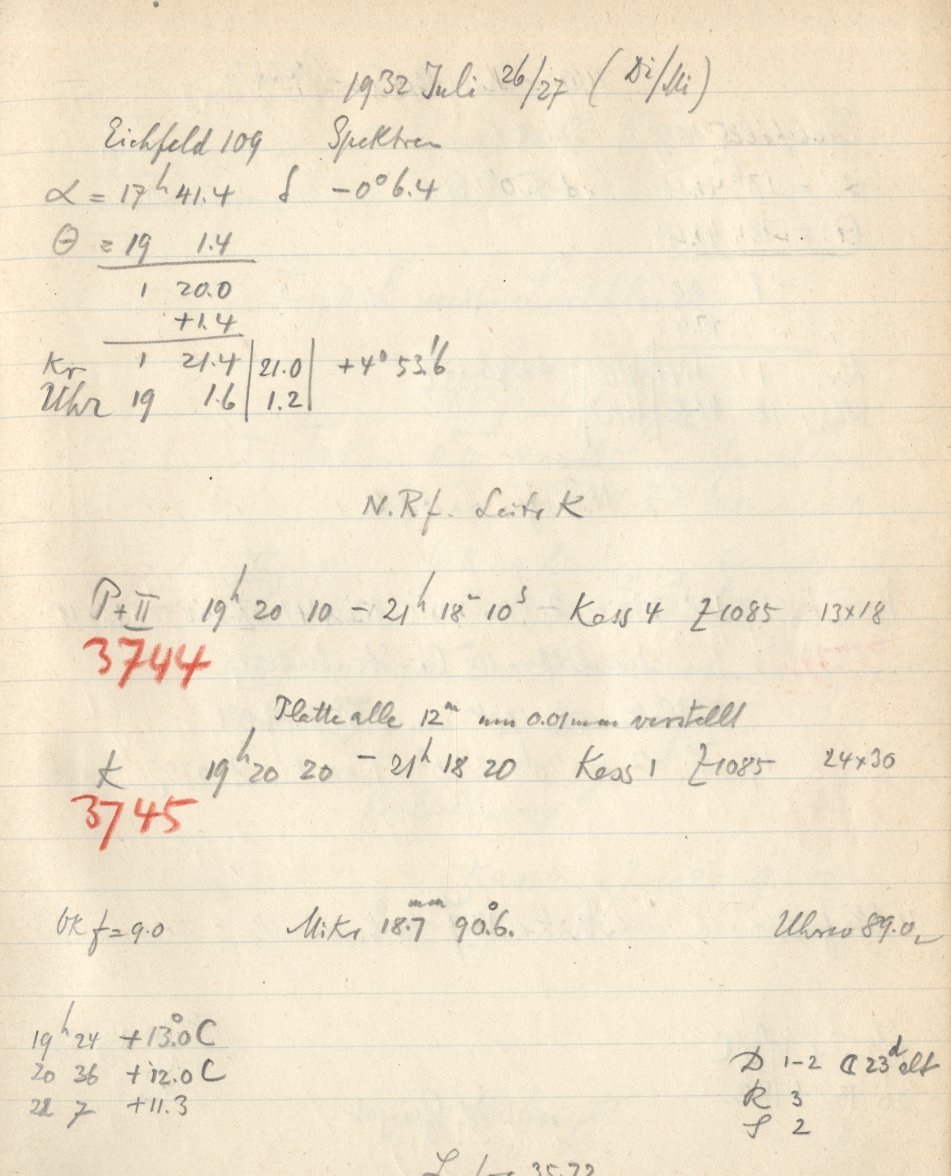 1932 Juli 26/27 (Di/Mi)
Eichfeld 109 Spektren
α = 17h 41.4 δ -0° 6.4
Θ = 19 1.4
1 20.0
+1.4
Kr 1 21.4 | 21.0 | +4° 53'.6
Uhr 19 1.6 | 1.2 |
N.Rf. Leitr K
P+II 19h 20 10 - 21h 18m 10s Kass 4 Z1085 13x18
3744
Platte alle 12m um 0.01mm verstellt
K 19h 20 20 - 21h 18 20 Kass 1 Z1085 24x30
3745
OK f=9.0 Mikr 18.7mm 90°.6. Uhrw 89.0
19h 24 +13°.0 C
20 36 +12.0 C
21 7 +11.3
D 1-2 ☾ 23d alt
R 3
S 2
35.72